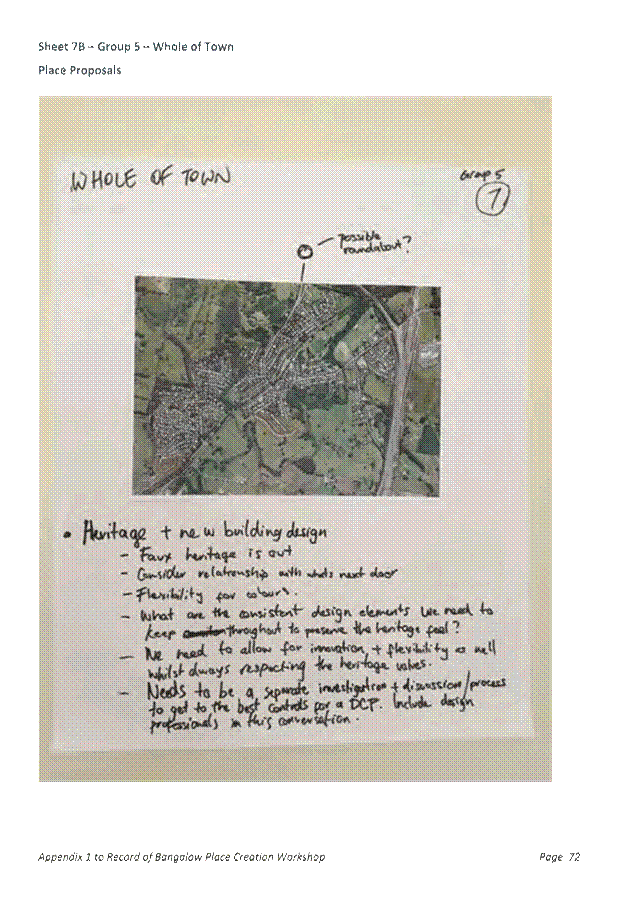 Sheet 7B – Group 5 – Whole of Town
Place Proposals
WHOLE OF TOWN
Group 5
7
possible
roundabout?
• Heritage + new building design
– Faux heritage is out
– Consider relationship with whats next door
– Flexibility for colours.
– What are the consistent design elements we need to
keep throughout to preserve the heritage feel?
– We need to allow for innovation + flexibility as well
whilst always respecting the heritage values.
– Needs to be a separate investigation + discussion/process
to get to the best controls for a DCP. Include design
professionals in this conversation.
Appendix 1 to Record of Bangalow Place Creation Workshop
Page 72